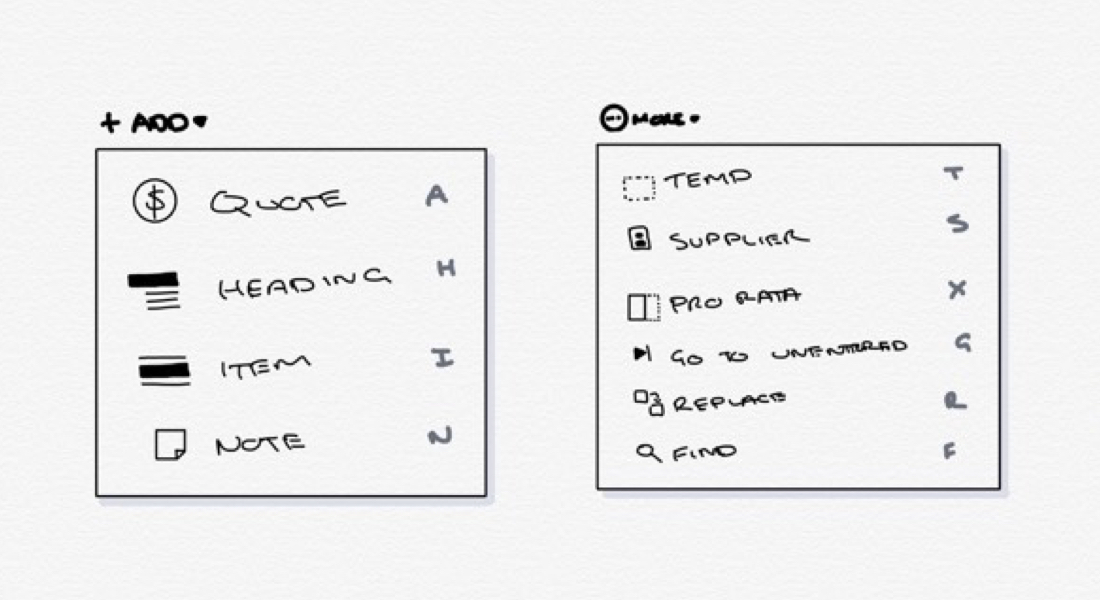 + ADD
QUOTE A
HEADING H
ITEM I
NOTE N
MORE
TEMP T
SUPPLIER S
PRO RATA X
GO TO UNENTERED G
REPLACE R
FIND F